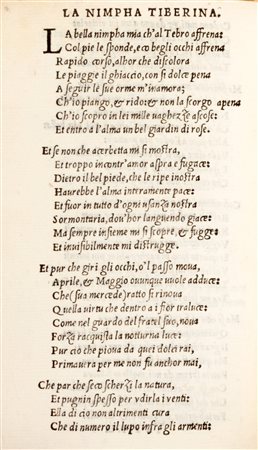 LA NINPHA TIBERINA.
LA bella nimpha mia ch'al Tebro affrena
Col pie le sponde, e co begli occhi affrena
Rapido corso, alhor che discolora
Le piaggie il ghiaccio, con si dolce pena
A seguir le sue orme m'inamora;
Ch'io piango, & rido: & non la scorgo apena
Ch'io scopro in lei mille vaghezze ascose:
Et entro a l'alma un bel giardin di rose.
Et se non che acerbetta mi si mostra,
Et troppo incontr'amor aspra e fugace:
Dietro il bel piede, che le ripe inostra
Haurebbe l'alma interamente pace:
Et fuor in tutto d'ogni usanza nostra
Sormontaria, dou'hor languendo giace:
Ma sempre insieme mi si scopre, & fugge:
Et inuisibilmente mi distrugge.
Et pur che giri gli occhi, o'l passo moua,
Aprile, & Maggio ouunque uuole adduce:
Che (sua mercede) ratto si rinoua
Quella uirtu che dentro a i fior traluce:
Come nel guardo del fratel suo, noua
Forza racquista la notturna luce:
Pur ciò che pioua da quei dolci rai,
Primauera per me non fu anchor mai,
Che par che seco scherze la natura,
Et pugnin spesso per udirla i uenti:
Ella di cio non altrimenti cura
Che di numero il lupo infra gli armenti: